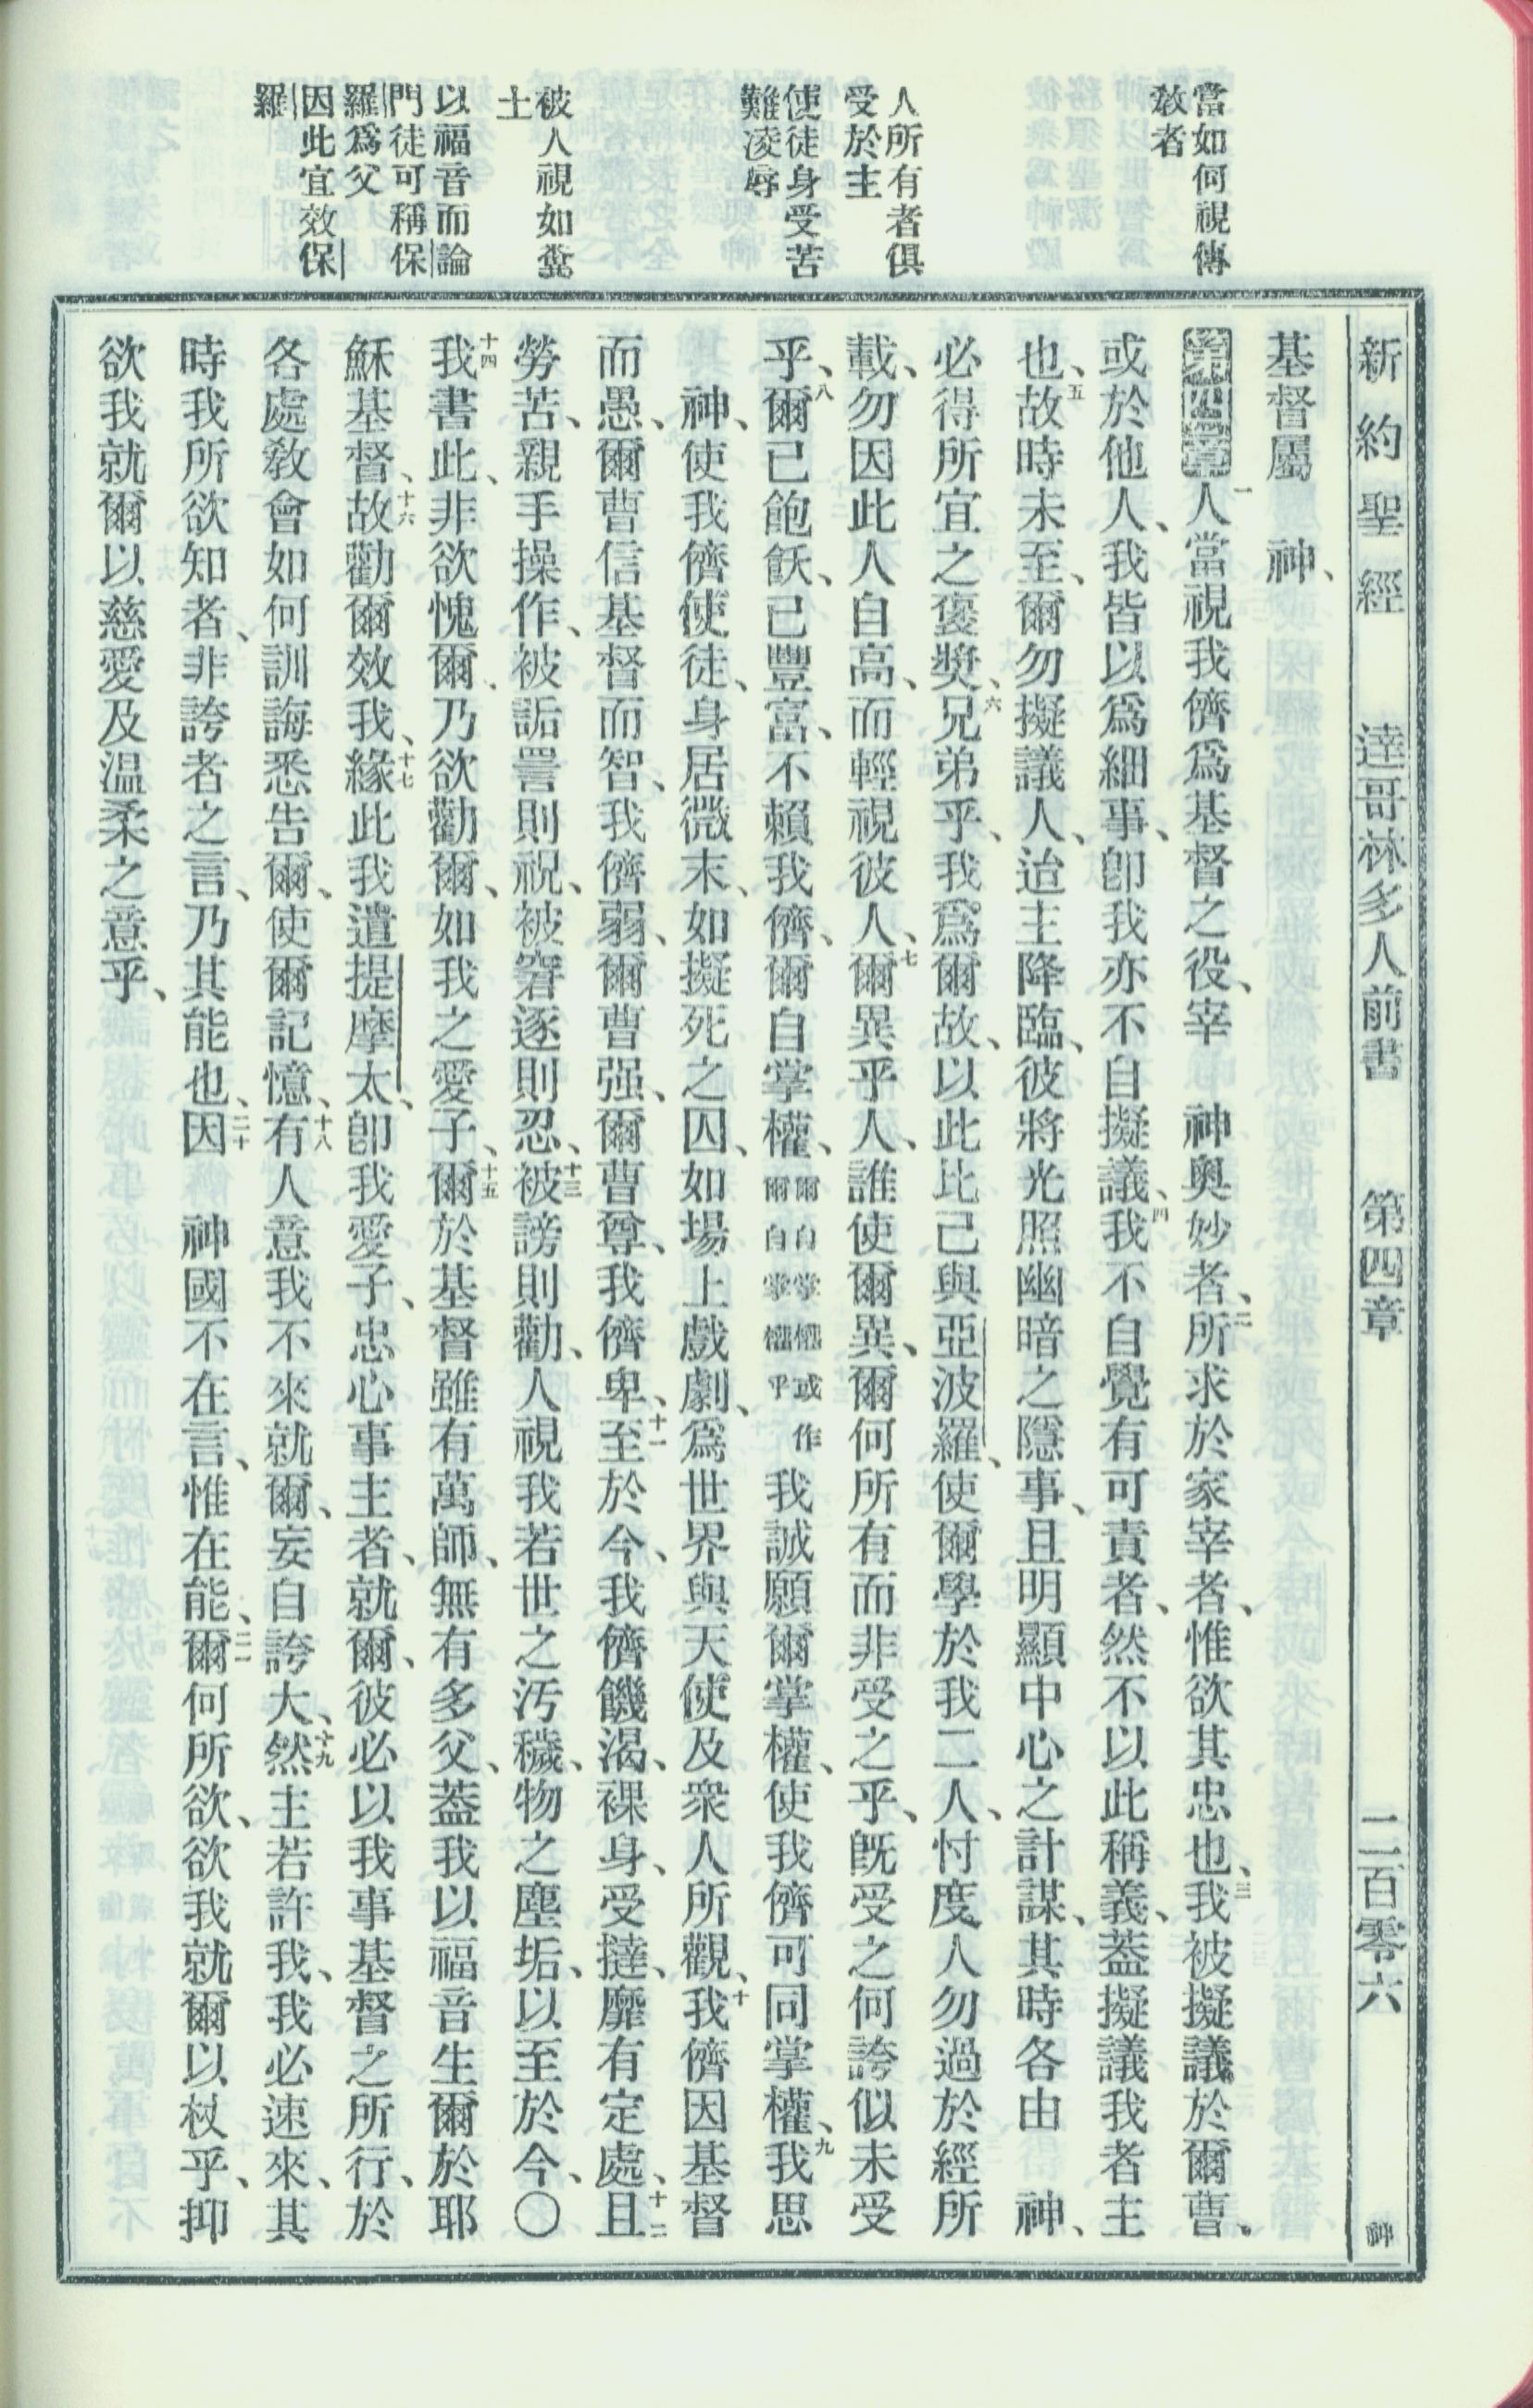 新約聖經 達哥林多人前書 第四章 二百零六 神
當如何視傳
教者
人所有者俱
受於主
使徒身受苦
難凌辱
被人視如糞
土
以福音而論
門徒可稱保
羅爲父
因此宜效保
羅
基督屬 神、
第四章一人當視我儕爲基督之役、宰 神奧妙者、二所求於家宰者、惟欲其忠也、三我被擬議於爾曹、
或於他人、我皆以爲細事、卽我亦不自擬議、四我不自覺有可責者、然不以此稱義、蓋擬議我者主
也、五故時未至、爾勿擬議人、迨主降臨、彼將光照幽暗之隱事、且明顯中心之計謀、其時各由 神、
必得所宜之褒獎、六兄弟乎、我爲爾故、以此比己與亞波羅、使爾學於我二人、忖度人勿過於經所
載、勿因此人自高、而輕視彼人、七爾異乎人、誰使爾異、爾何所有而非受之乎、旣受之何誇似未受
乎、八爾已飽飫、已豐富、不賴我儕、爾自掌權、爾自掌權或作爾自掌權乎我誠願爾掌權、使我儕可同掌權、九我思
神、使我儕使徒、身居微末、如擬死之囚、如場上戲劇、爲世界與天使及衆人所觀、十我儕因基督
而愚、爾曹信基督而智、我儕弱、爾曹强、爾曹尊、我儕卑、十一至於今、我儕饑渴、裸身、受撻、靡有定處、十二且
勞苦、親手操作、被詬詈則祝、被窘逐則忍、十三被謗則勸、人視我若世之汚穢、物之塵垢、以至於今、〇
十四我書此、非欲愧爾、乃欲勸爾、如我之愛子、十五爾於基督雖有萬師、無有多父、蓋我以福音生爾於耶
穌基督、十六故勸爾效我、十七緣此我遣提摩太、卽我愛子、忠心事主者、就爾、彼必以我事基督之所行、於
各處敎會如何訓誨悉告爾、使爾記憶、十八有人意我不來就爾、妄自誇大、十九然主若許我、我必速來、其
時我所欲知者、非誇者之言、乃其能也、二十因 神國不在言、惟在能、二一爾何所欲、欲我就爾以杖乎、抑
欲我就爾以慈愛及温柔之意乎、